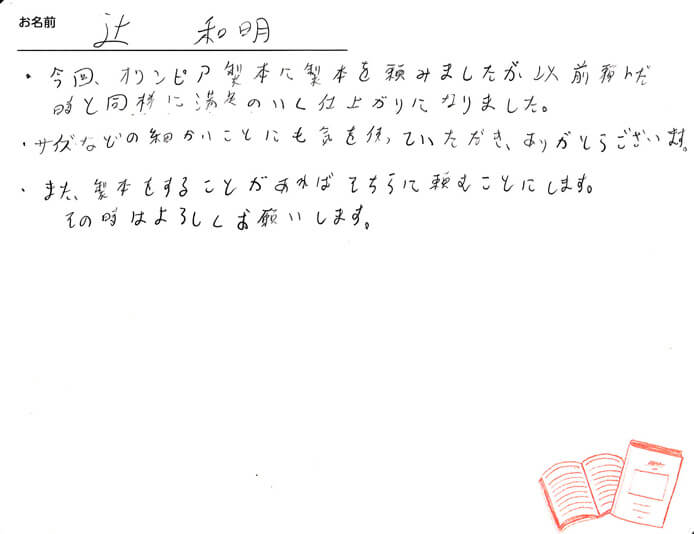 お名前 辻 和明
・今回、オリンピア製本に製本を頼みましたが、以前頼んだ
時と同様に満足のいく仕上がりになりました。
・サイズなどの細かいことにも気を使っていただき、ありがとうございます。
・また、製本をすることがあればそちらに頼むことにします。
その時はよろしくお願いします。